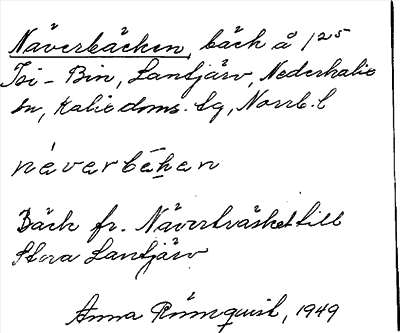 Näverbäcken, bäck å 125
Toi-Bin, Lantjärv, Nederkalix
sn, Kalix doms. lg, Norrb. l
néverbéken
Bäck fr. Näverträsket till
Stora Lantjärv
Anna Rönnquist, 1949